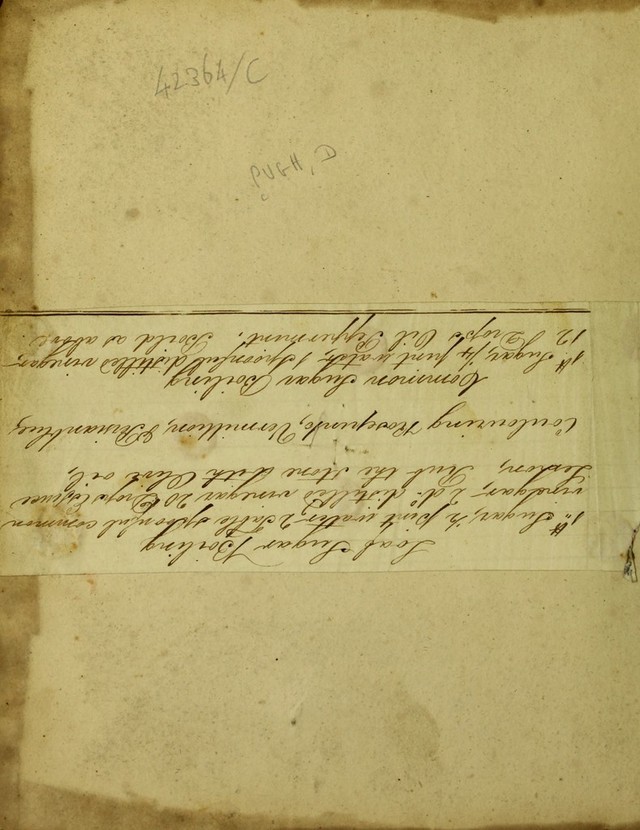 42364/C
PUGH, D
Loaf Sugar Boiling
1lb Sugar, ½ pint water, 2 Table spoonful common
vinegar, 2 do. distilled vinegar 20 Drops Essence
Lemon, Rub the Stone with Olive oil,
Coulouring Rosepink, Vermillion, Prussianblue,
Common Sugar Boiling
1lb Sugar, ¼ pint water, 1 Spoonful distilled vinegar,
12 Drops Oil Peppermint. Boild as above.